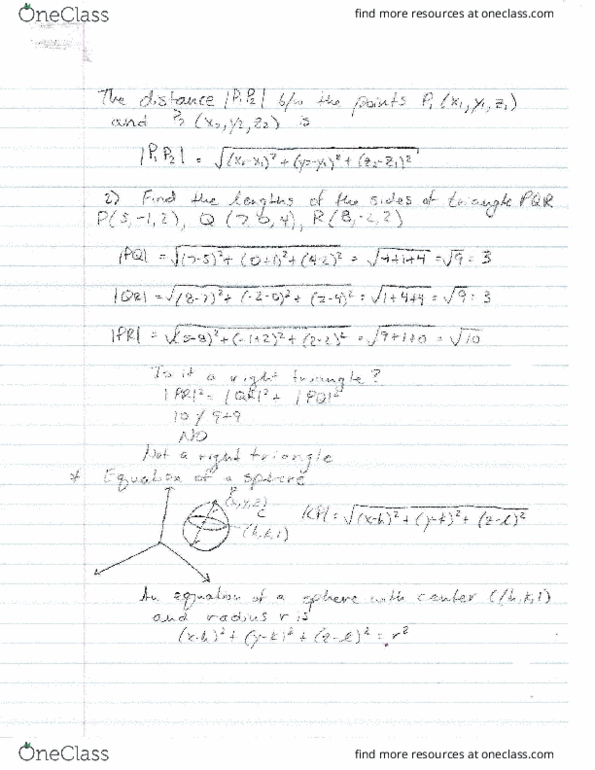 OneClass
find more resources at oneclass.com
The distance |P₁P₂| b/w the points P₁ (x₁, y₁, z₁)
and P₂ (x₂, y₂, z₂) is
|P₁P₂| = √(x₂-x₁)² + (y₂-y₁)² + (z₂-z₁)²
2) Find the lengths of the sides of triangle PQR
P(5, -1, 2), Q (7, 0, 4), R(8, -2, 2)
|PQ| = √(7-5)² + (0+1)² + (4-2)² = √4+1+4 = √9 = 3
|QR| = √(8-7)² + (-2-0)² + (2-4)² = √1+4+4 = √9 = 3
|PR| = √(5-8)² + (-1+2)² + (2-2)² = √9+1+0 = √10
Is it a right triangle?
|PR|² = |QR|² + |PQ|²
10 ≠ 9+9
NO
Not a right triangle
* Equation of a sphere
P
(x, y, z)
C
(h, k, l)
|CP| = √(x-h)² + (y-k)² + (z-l)²
An equation of a sphere with center C(h, k, l)
and radius r is
(x-h)² + (y-k)² + (z-l)² = r²
OneClass
find more resources at oneclass.com